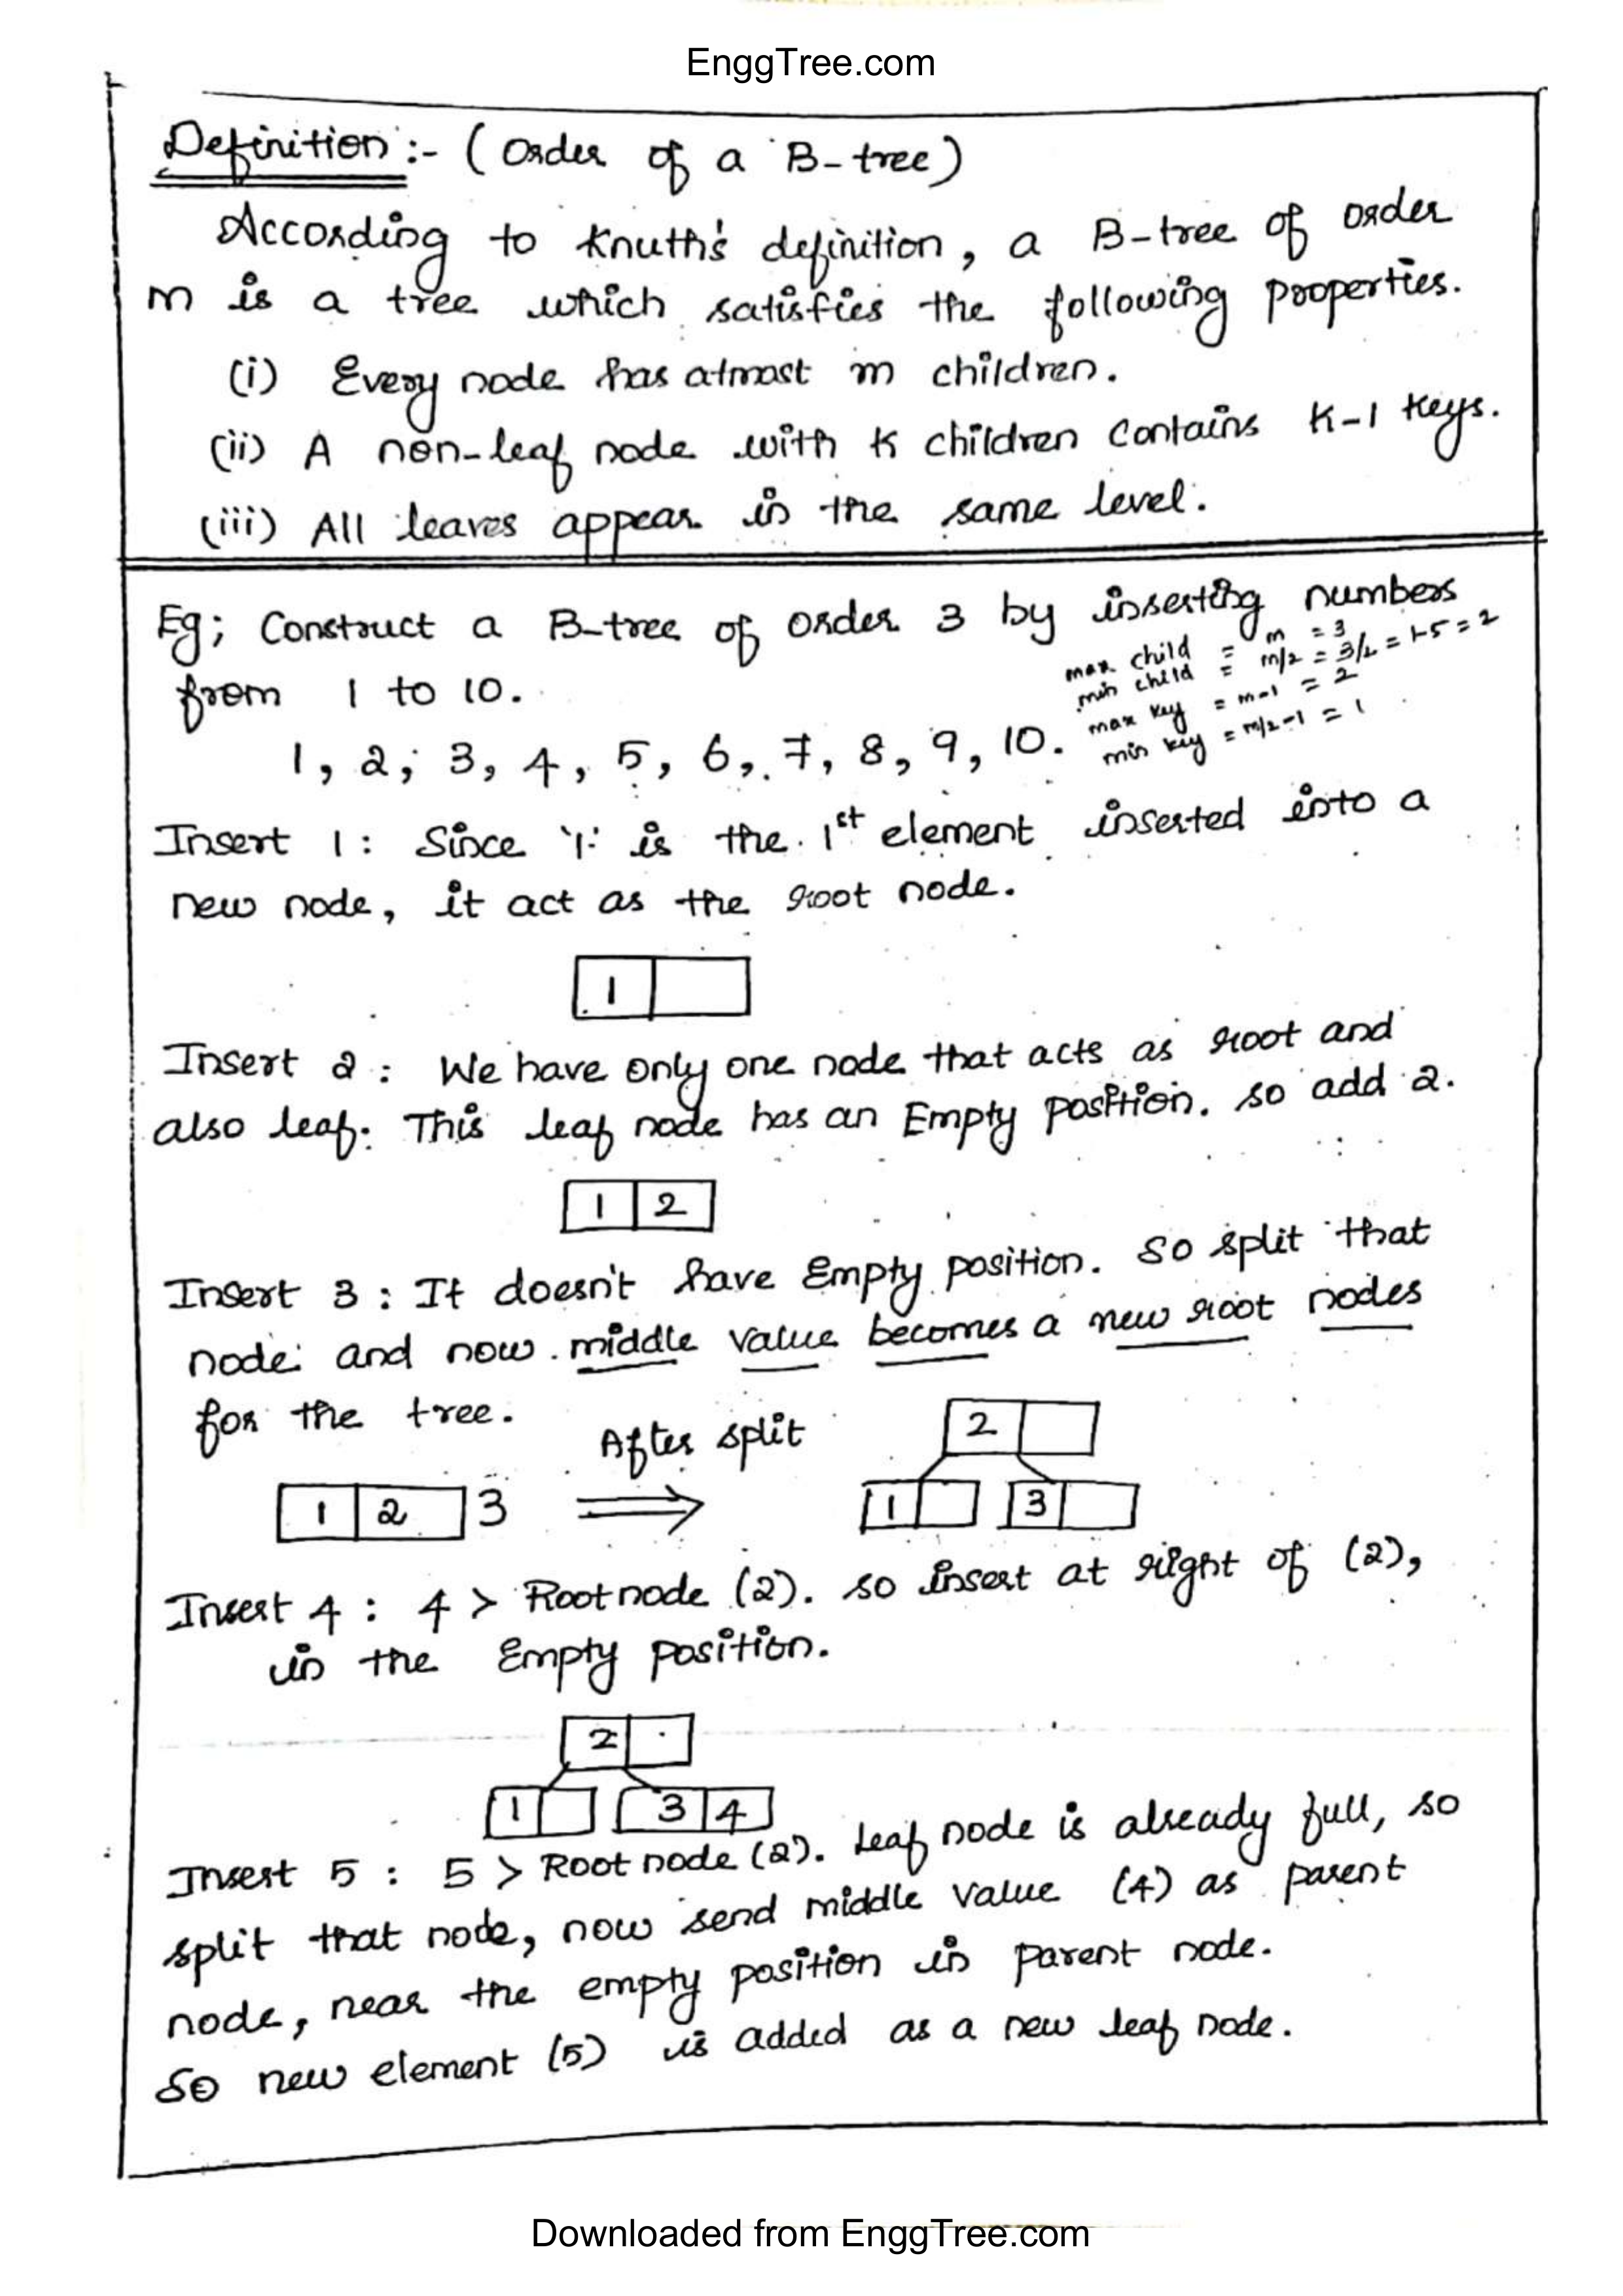 EnggTree.com
Definition :- ( Order of a B-tree)
According to Knuth's definition, a B-tree of order
m is a tree which satisfies the following properties.
(i) Every node has atmost m children.
(ii) A non-leaf node with K children contains K-1 keys.
(iii) All leaves appear in the same level.
Eg; Construct a B-tree of order 3 by inserting numbers
from 1 to 10.
max child = m = 3
min child = m/2 = 3/2 = 1.5 = 2
max key = m-1 = 2
min key = m/2-1 = 1
1, 2, 3, 4, 5, 6, 7, 8, 9, 10.
Insert 1 : Since '1' is the 1st element inserted into a
new node, it act as the root node.
1
Insert 2 : We have only one node that acts as root and
also leaf. This leaf node has an Empty position. so add 2.
1 2
Insert 3 : It doesn't have Empty position. So split that
node and now middle value becomes a new root nodes
for the tree.
After split
2
1 2 3 ⟹ 1 3
Insert 4 : 4 > Root node (2). so insert at right of (2),
in the Empty position.
2
1 3 4
Insert 5 : 5 > Root node (2). Leaf node is already full, so
split that node, now send middle value (4) as parent
node, near the empty position in parent node.
So new element (5) is added as a new leaf node.
Downloaded from EnggTree.com